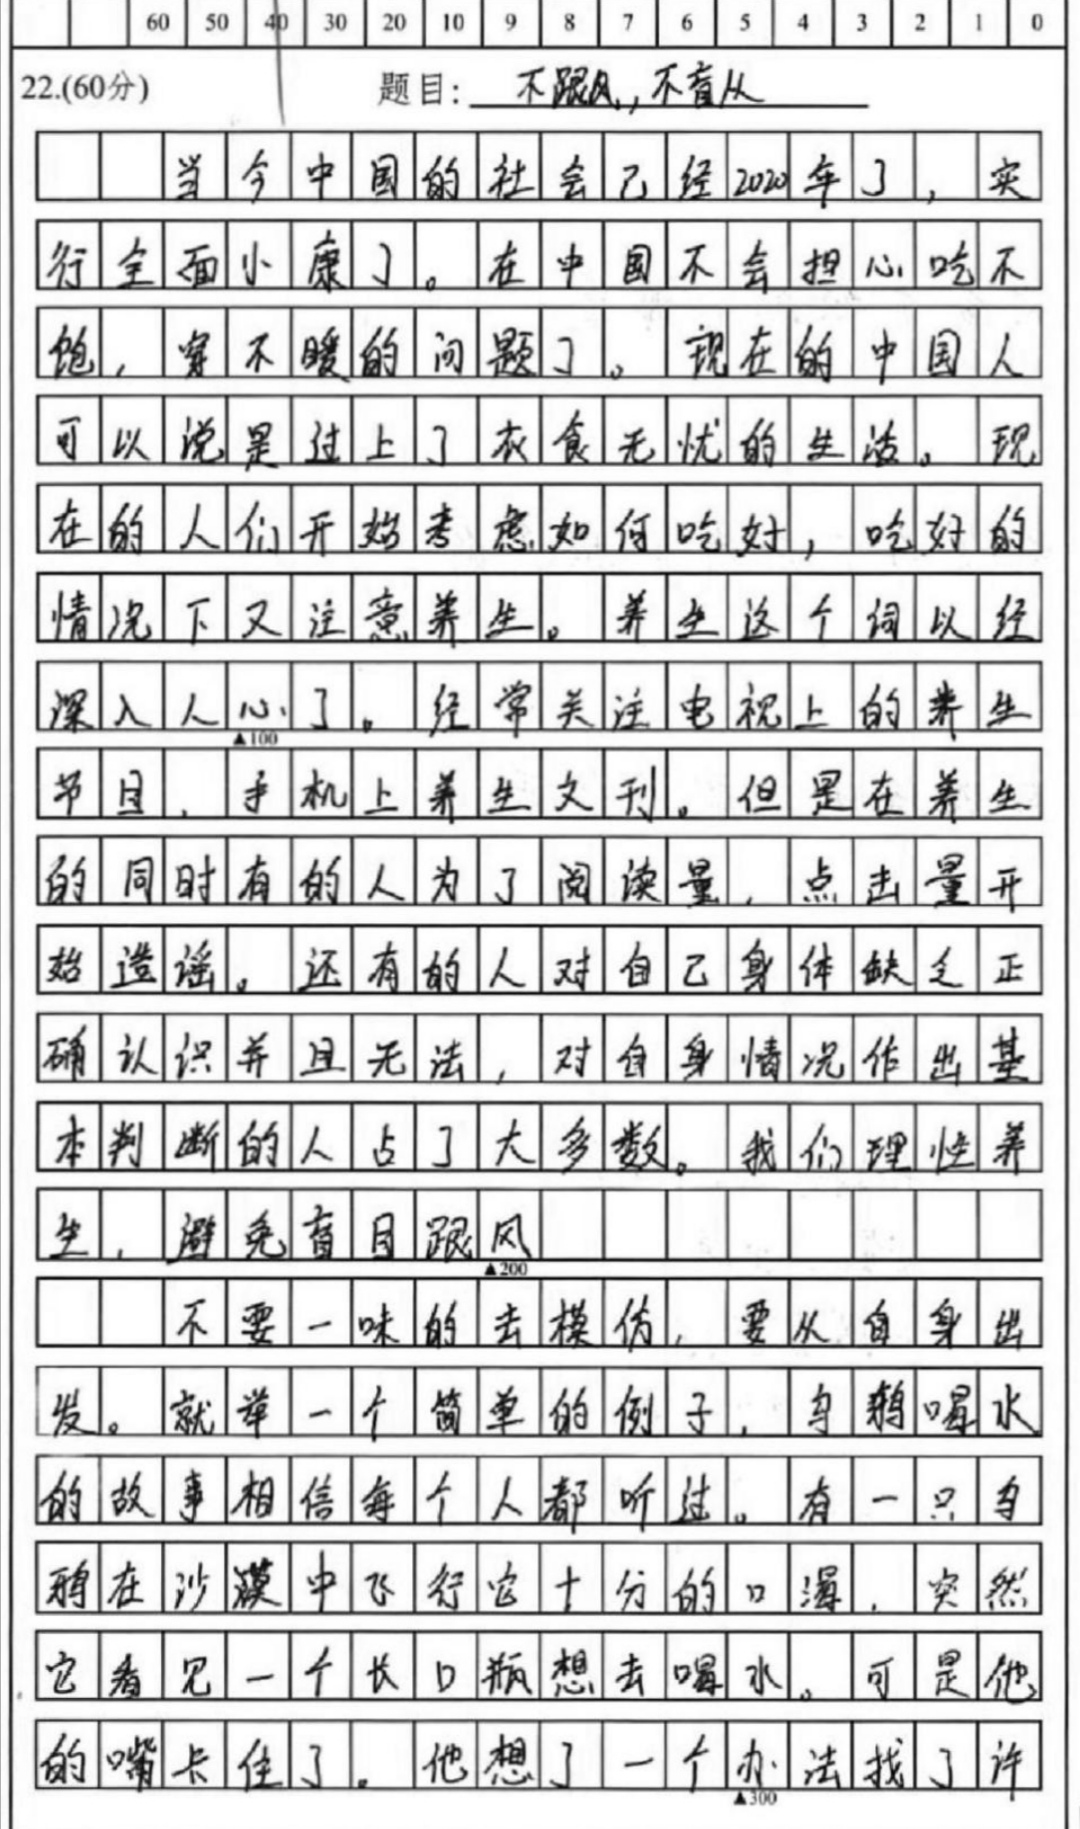 60 50 40 30 20 10 9 8 7 6 5 4 3 2 1 0
22.(60分) 题目: 不跟风,不盲从
当今中国的社会已经2020年了,实
行全面小康了。在中国不会担心吃不
饱,穿不暖的问题了。现在的中国人
可以说是过上了衣食无忧的生活。现
在的人们开始考虑如何吃好,吃好的
情况下又注意养生。养生这个词以经
深入人心了。经常关注电视上的养生
▲100
节目,手机上养生文刊。但是在养生
的同时有的人为了阅读量,点击量开
始造谣。还有的人对自己身体缺乏正
确认识并且无法,对自身情况作出基
本判断的人占了大多数。我们理性养
生,避免盲目跟风
▲200
不要一味的去模仿,要从自身出
发。就举一个简单的例子,乌鸦喝水
的故事相信每个人都听过。有一只乌
鸦在沙漠中飞行它十分的口渴,突然
它看见一个长口瓶想去喝水。可是他
的嘴卡住了。他想了一个办法找了许
▲300